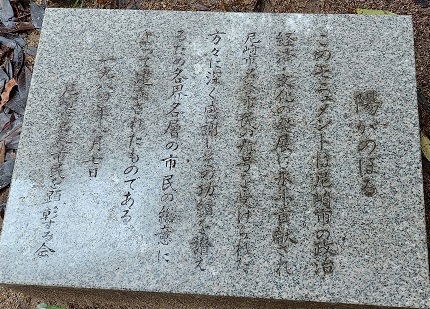 陽がのぼる
このモニュメントは尼崎市の政治
経済、文化の発展に永年貢献され
尼崎市名誉市民の称号を受けられた
方々に深く感謝しその功績を讃え
るため各界各層の市民の総意に
よって建立されたものである
一九八 年 月 日
尼崎市名誉市民を顕彰する会